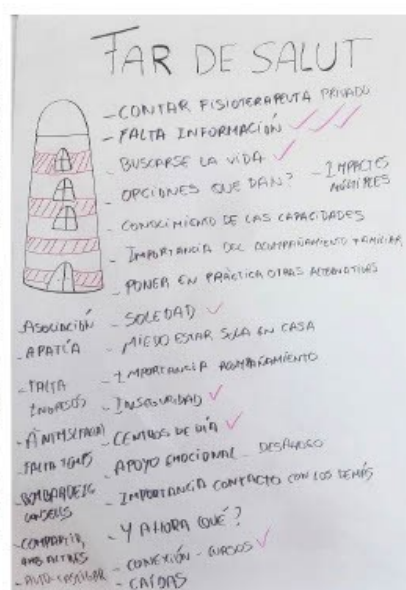 FAR DE SALUT
- CONTAR FISIOTERAPEUTA PRIVADO
- FALTA INFORMACIÓN
- BUSCARSE LA VIDA
- OPCIONES QUE DAN? - IMPACTES MÚLTIPLES
- CONOCIMIENTO DE LAS CAPACIDADES
- IMPORTANCIA DEL ACOMPAÑAMIENTO FAMILIAR
- PONER EN PRÁCTICA OTRAS ALTERNATIVAS
- SOLEDAD
- MIEDO ESTAR SOLA EN CASA
- IMPORTANCIA ACOMPAÑAMIENTO
- INSEGURIDAD
- CENTROS DE DÍA
- APOYO EMOCIONAL - DESAHOGO
- IMPORTANCIA CONTACTO CON LOS DEMÁS
- Y AHORA QUÉ?
- CONEXIÓN - CURSOS
- CAÍDAS
- ASOCIACIÓN
- APATÍA
- FALTA
INGRESOS
- FALTA TEMPS
- BOMBARDEIG
CONSELLS
- COMPARTIR
AMB ALTRES
- AUTO-CASTIGAR